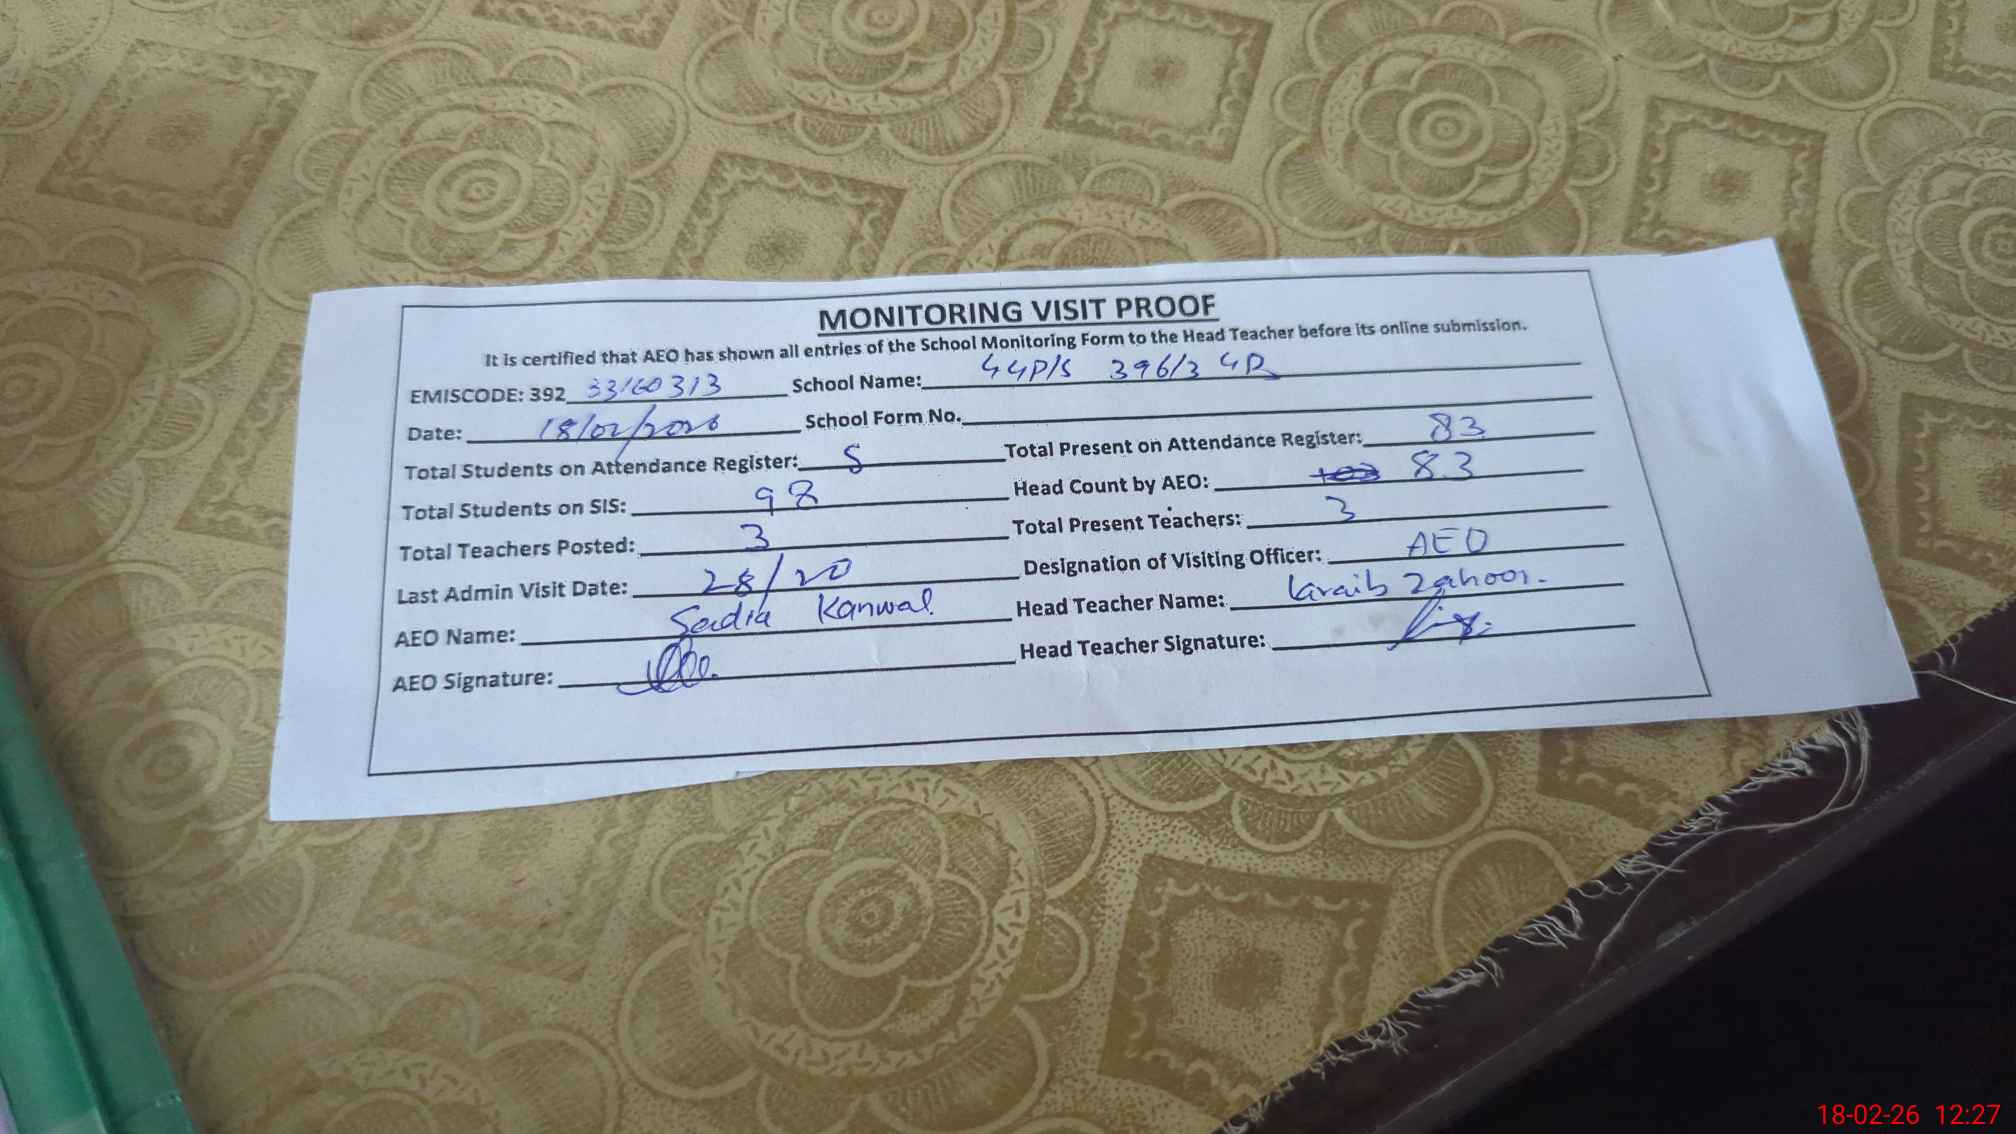 MONITORING VISIT PROOF
It is certified that AEO has shown all entries of the School Monitoring Form to the Head Teacher before its online submission.
EMISCODE: 392 33160313 School Name: GGP/S 396/3 GR
Date: 18/02/2026 School Form No.
Total Students on Attendance Register: S Total Present on Attendance Register: 83
Total Students on SIS: 98 Head Count by AEO: 83
Total Teachers Posted: 3 Total Present Teachers: 3
Last Admin Visit Date: 28/20 Designation of Visiting Officer: AEO
AEO Name: Sadia Kanwal Head Teacher Name: Zahoor.
AEO Signature: Head Teacher Signature:
18-02-26 12:27